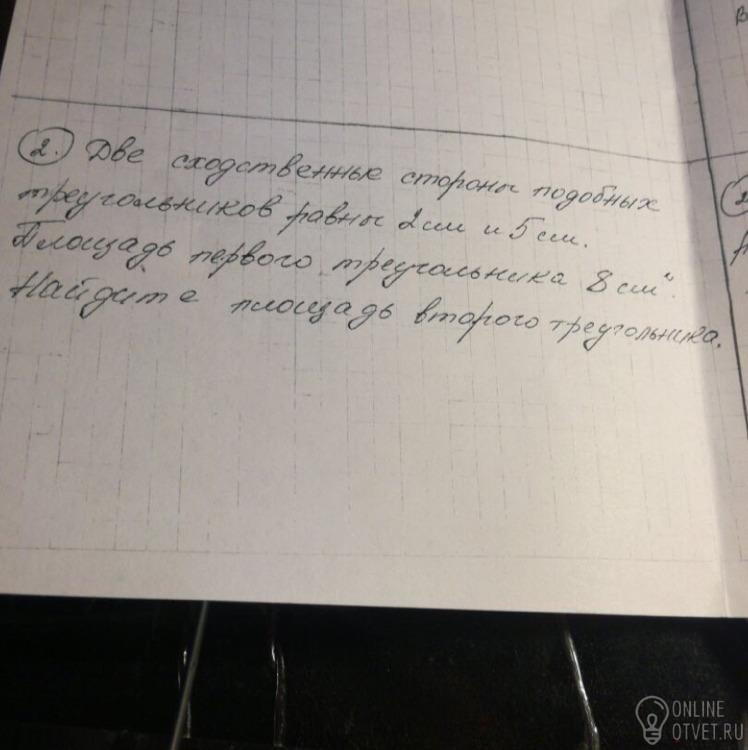 2. Две сходственные стороны подобных
треугольников равны 2см и 5см.
Площадь первого треугольника 8см².
Найдите площадь второго треугольника.
ONLINE
OTVET.RU